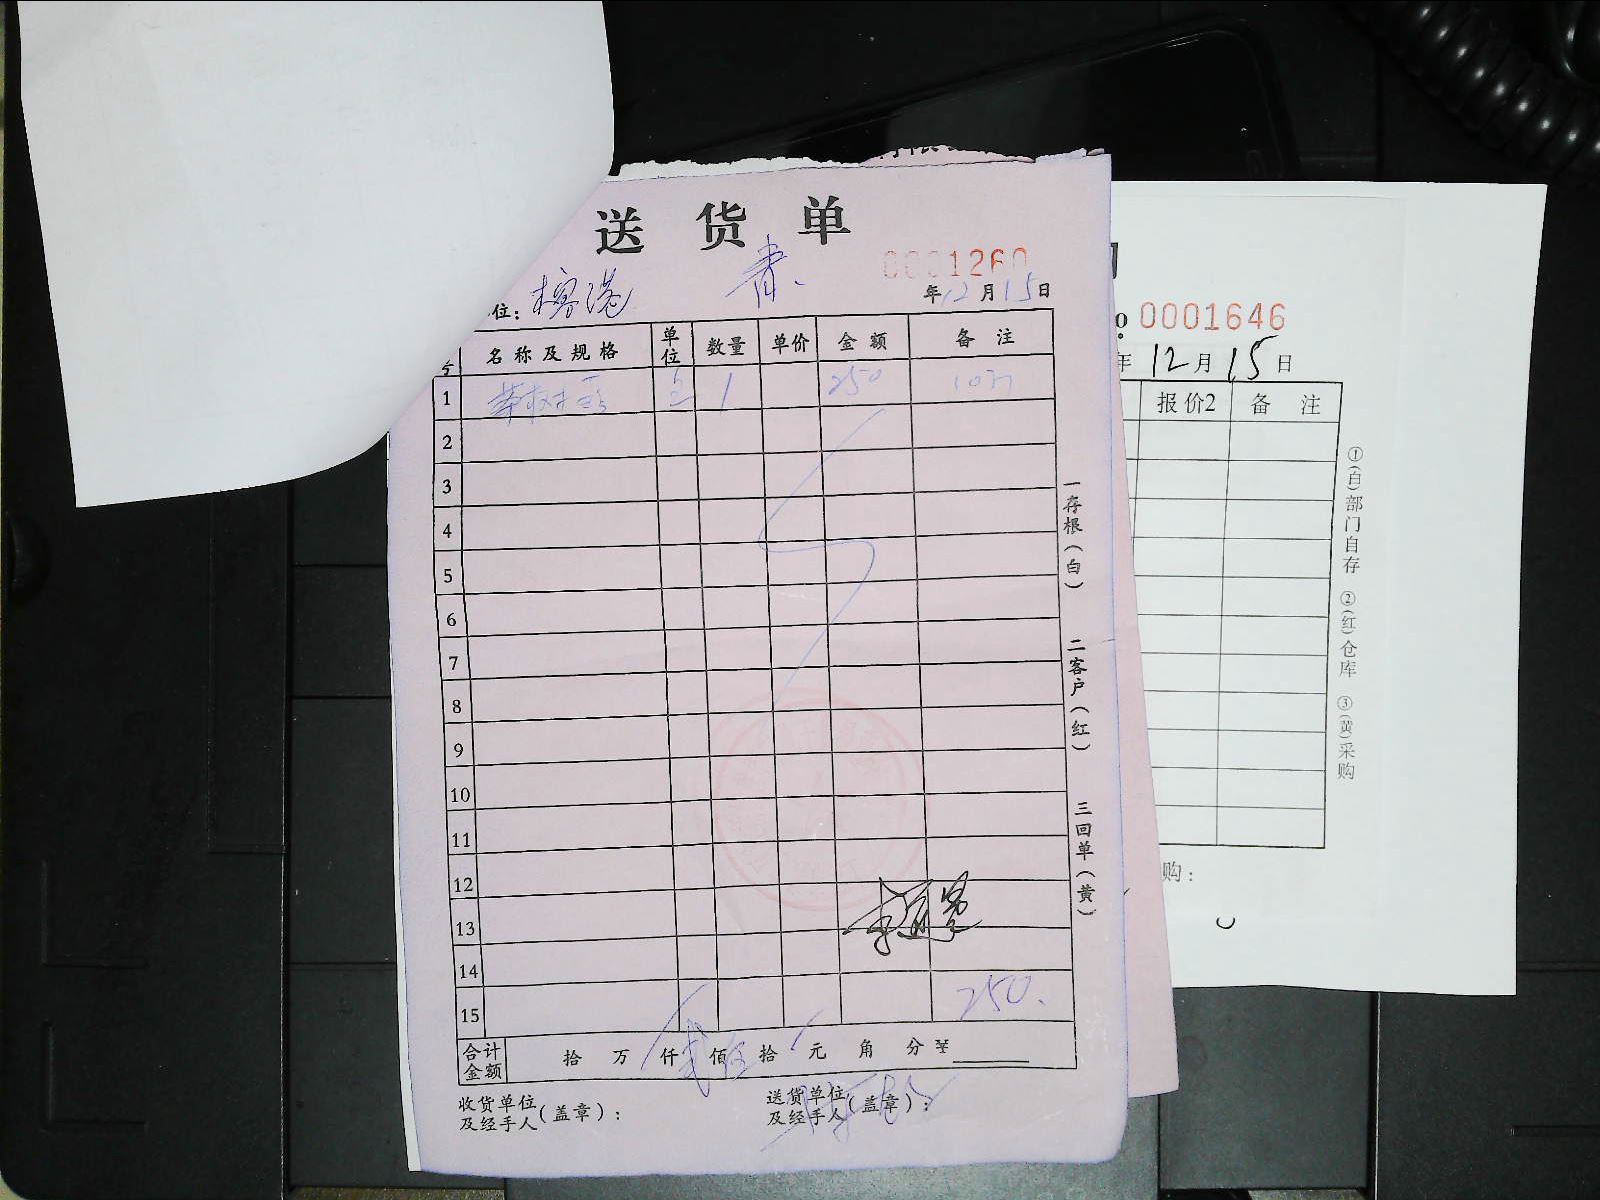 送货单
0001260
位：榕港
年12月15日
名称及规格 单位 数量 单价 金额 备注
1 1 250
2
3
4
5
6
7
8
9
10
11
12
13
14
15 250.
合计金额 拾万仟贰佰伍拾元角分¥
收货单位及经手人(盖章)：
送货单位及经手人(盖章)：
一存根(白) 二客户(红) 三回单(黄)
0001646
年12月15日
报价2 备注
①(白)部门自存 ②(红)仓库 ③(黄)采购
购：